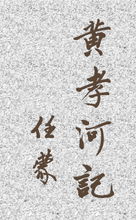 黄孝河記
任蒙